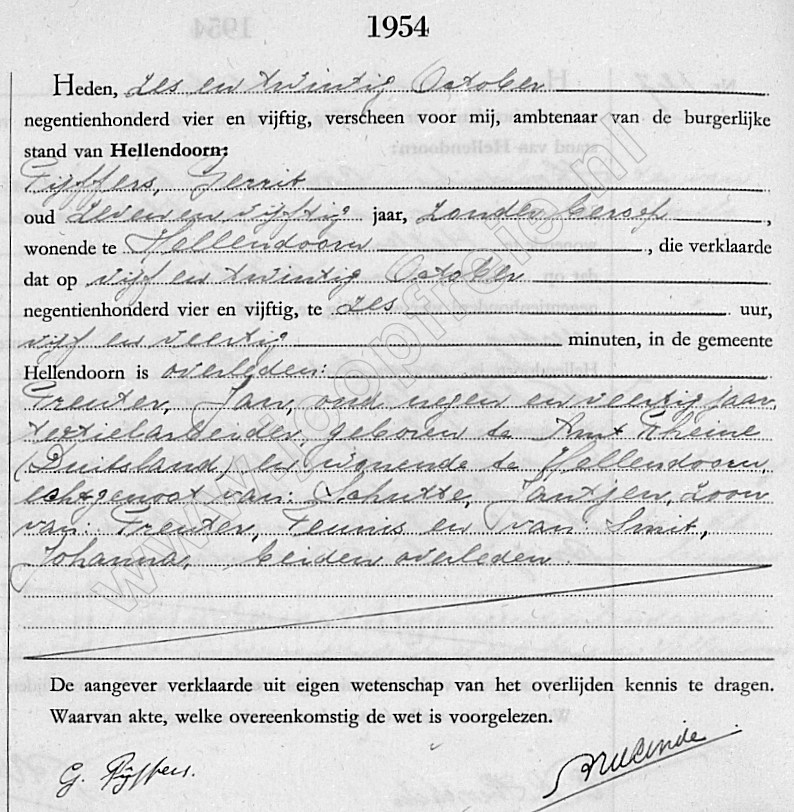 1954
Heden, zes en twintig October
negentienhonderd vier en vijftig, verscheen voor mij, ambtenaar van de burgerlijke
stand van Hellendoorn:
Gerrit
oud zeven en vijftig jaar, zonder beroep,
wonende te Hellendoorn, die verklaarde
dat op vijf en twintig October
negentienhonderd vier en vijftig, te zes uur,
vijf en veertig minuten, in de gemeente
Hellendoorn is overleden:
Jan, oud negen en veertig jaar,
textielarbeider, geboren te Amt Rheine
(Duitsland) en wonende te Hellendoorn,
echtgenoot van: Schutte, Jantjen, zoon
van: Teunis en van Smit,
Johanna, beiden overleden.
De aangever verklaarde uit eigen wetenschap van het overlijden kennis te dragen.
Waarvan akte, welke overeenkomstig de wet is voorgelezen.
G.